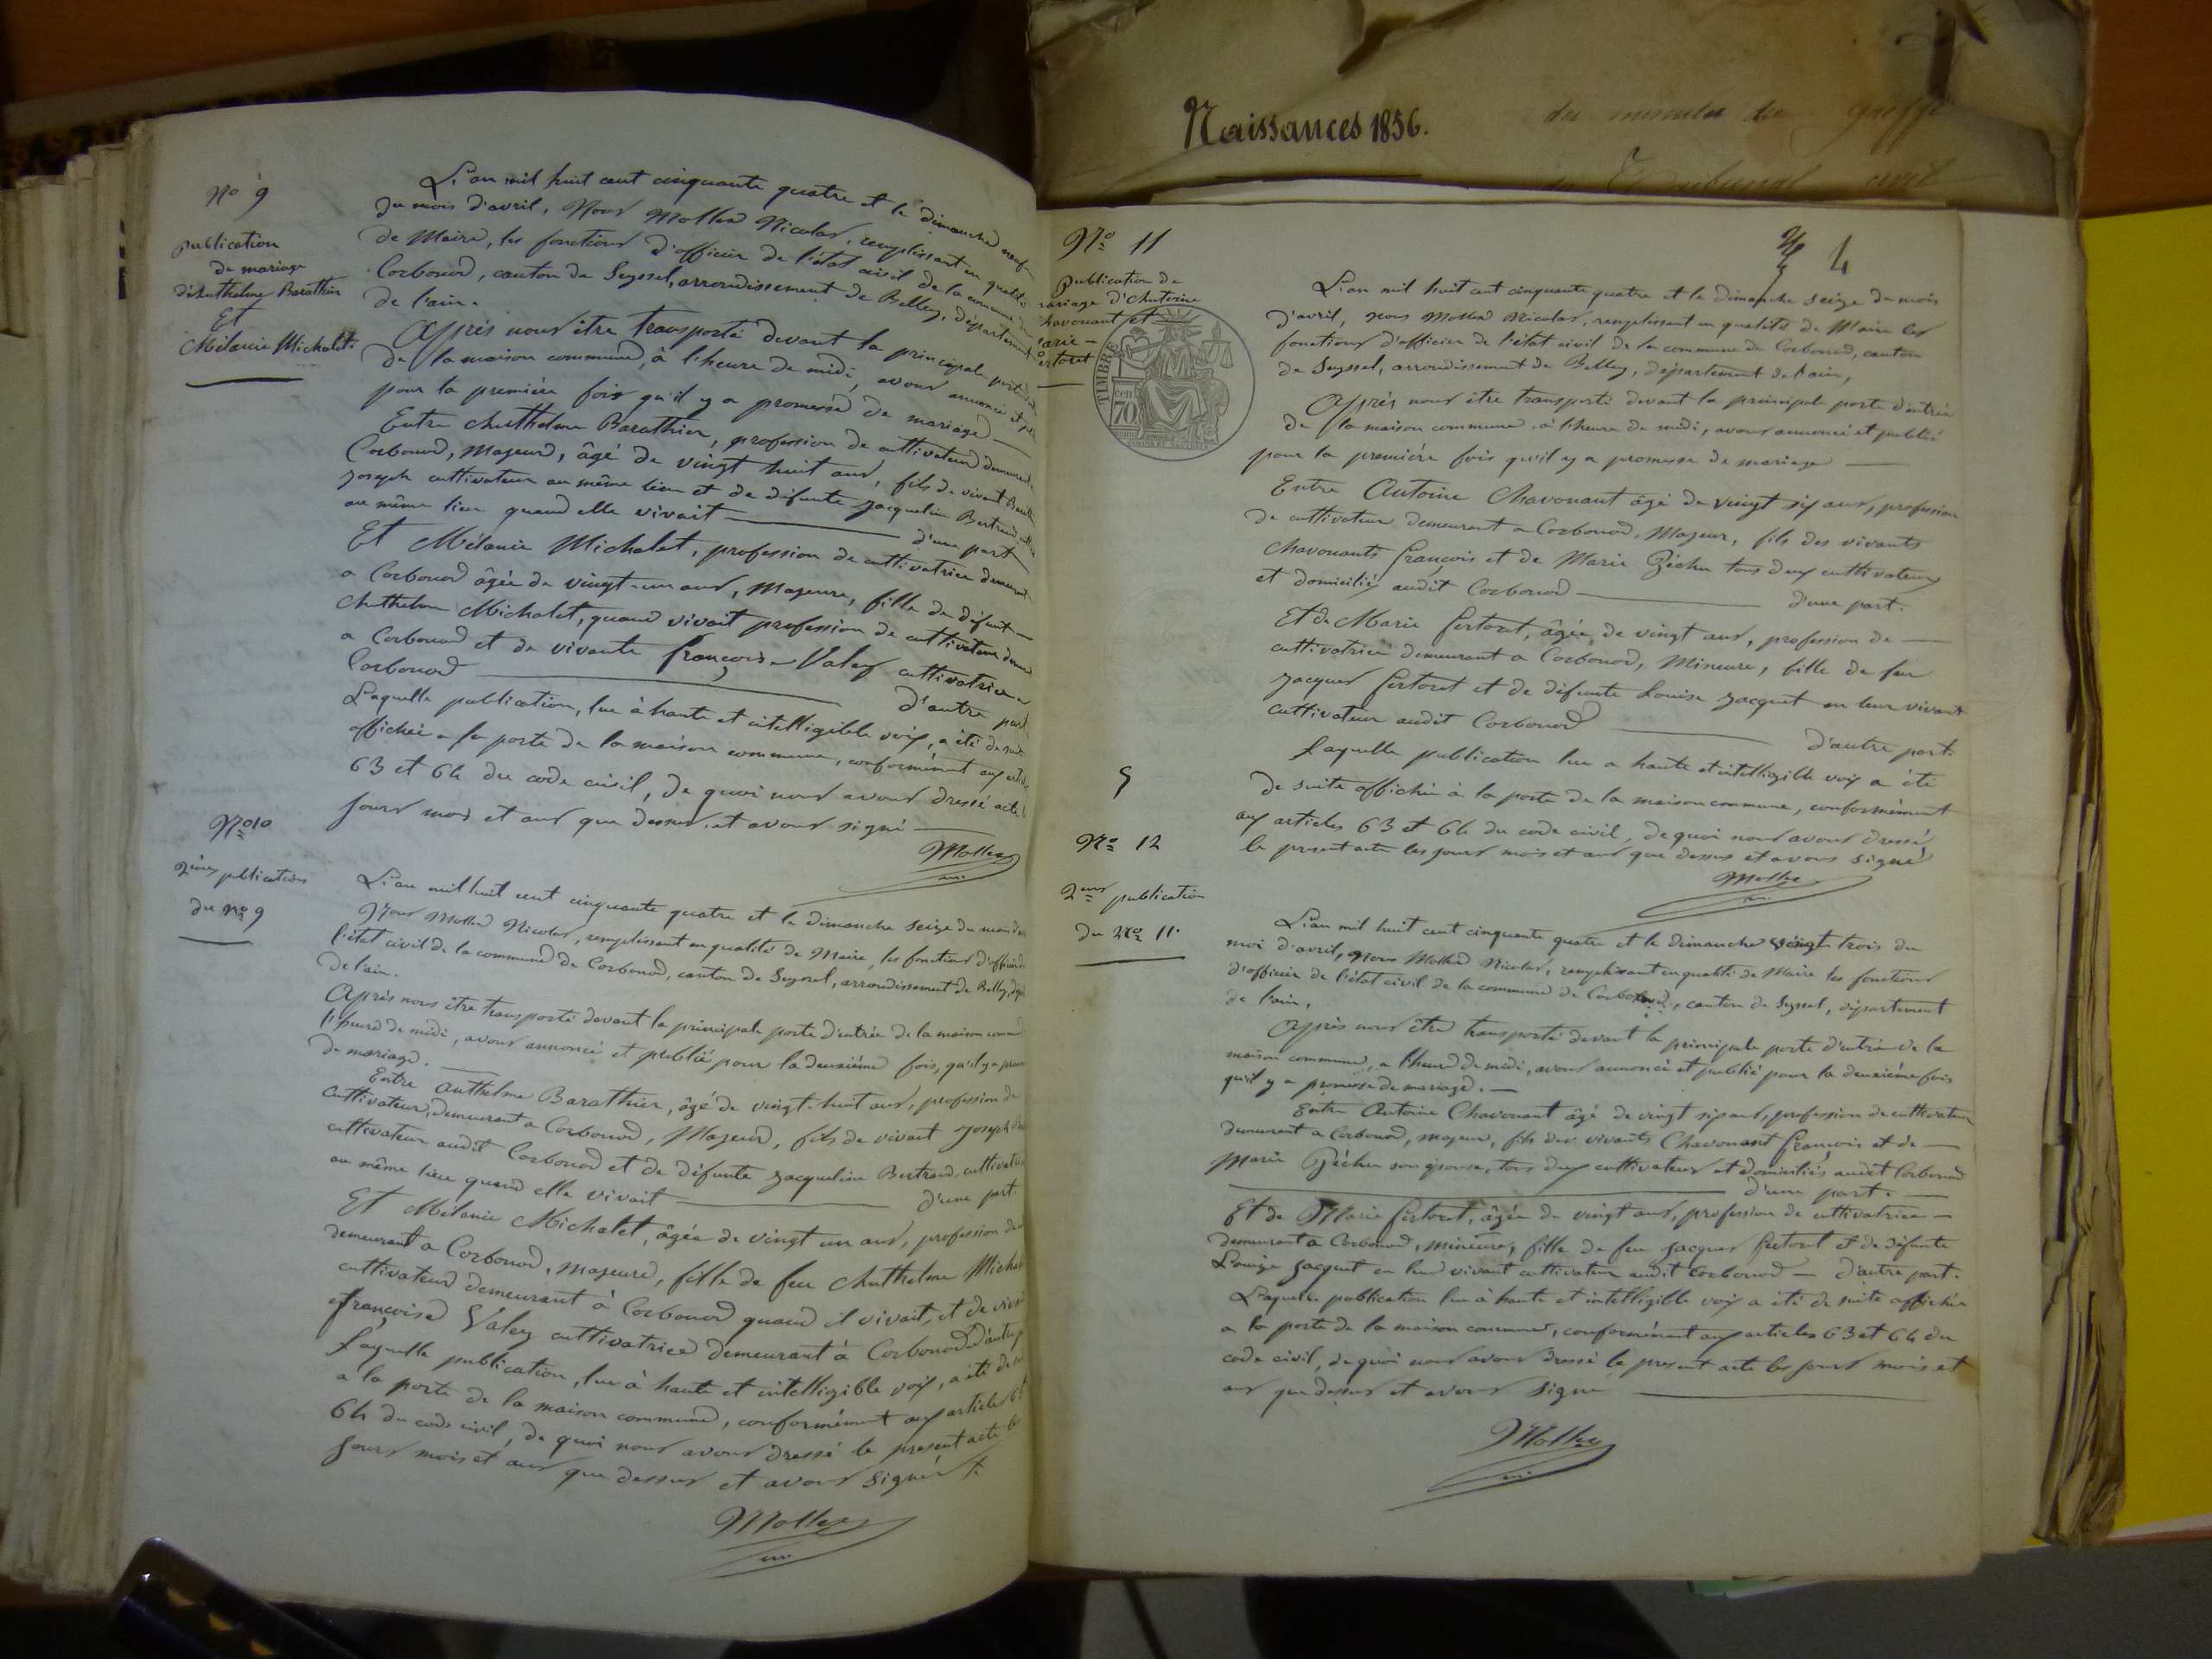 Naissances 1856.
des minutes du greffe
Tribunal civil
No 9
publication
de mariage
d'Anthelme Barathier
Et
Mélanie Michalet.
L'an mil huit cent cinquante quatre et le dimanche neuf
du mois d'avril, Nous Mollex Nicolas, remplissant en qualité
de Maire, les fonctions d'officier de l'état civil de la commune de
Corbonod, canton de Seyssel, arrondissement de Belley, département
de l'ain.
Après nous être transporté devant la principale porte
de la maison commune, à l'heure de midi, avons annoncé et
pour la première fois qu'il y a promesse de mariage
Entre Anthelme Barathier, profession de cultivateur demeurant
Corbonod, Majeur, âgé de vingt huit ans, fils de vivant
Joseph cultivateur au même lieu et de défunte Jacqueline Bertrand
au même lieu quand elle vivait d'une part
Et Mélanie Michalet, profession de cultivatrice demeurant
a Corbonod âgée de vingt-un ans, Majeure, fille de défunt
Anthelme Michalet, quand vivait profession de cultivateur
a Corbonod et de vivante françoise Valey cultivatrice a
Corbonod d'autre part
Laquelle publication, lue à haute et intelligible voix, a été de suite
affichée a la porte de la maison commune, conformément aux articles
63 et 64 du code civil, de quoi nous avons dressé acte
jours mois et ans que dessus, et avons signé
Mollex
No 10
2ème publication
du No 9
L'an mil huit cent cinquante quatre et le dimanche seize du mois
Nous Mollex Nicolas, remplissant en qualité de Maire, les fonctions d'officier de
l'état civil de la commune de Corbonod, canton de Seyssel, arrondissement de Belley,
de l'ain.
Après nous être transporté devant la principale porte d'entrée de la maison
l'heure de midi, avons annoncé et publié pour la deuxième fois, qu'il y a
de mariage.
Entre Anthelme Barathier, âgé de vingt-huit ans, profession de
Cultivateur, demeurant a Corbonod, Majeur, fils de vivant Joseph
cultivateur audit Corbonod et de défunte Jacqueline Bertrand, cultivatrice
au même lieu quand elle vivait d'une part
Et Mélanie Michalet, âgée de vingt un ans, profession de
demeurant a Corbonod, majeure, fille de feu Anthelme Michalet
cultivateur demeurant à Corbonod quand il vivait, et de
françoise Valey cultivatrice demeurant à Corbonod d'autre
Laquelle publication, lue à haute et intelligible voix, a été de
a la porte de la maison commune, conformément aux articles
64 du code civil, de quoi nous avons dressé le présent acte les
jours mois et ans que dessus et avons signé
Mollex
4
No 11
publication de
mariage d'Antoine
havonant et
arie
ertoret
TIMBRE
cen
70
L'an mil huit cent cinquante quatre et le dimanche seize du mois
d'avril, nous Mollex Nicolas, remplissant en qualité de Maire les
fonctions d'officier de l'état civil de la commune de Corbonod, canton
de Seyssel, arrondissement de Belley, département de l'ain,
Après nous être transporté devant la principale porte d'entrée
de la maison commune, à l'heure de midi, avons annoncé et publié
pour la première fois qu'il y a promesse de mariage
Entre Antoine Chavonant âgé de vingt six ans, profession
de cultivateur demeurant a Corbonod, Majeur, fils des vivants
Chavonants françois et de Marie Béchu tous deux cultivateurs
et domiciliés audit Corbonod d'une part.
Et de Marie fertoret, âgée de vingt ans, profession de
cultivatrice demeurant a Corbonod, Mineure, fille de feu
Jacques fertoret et de défunte Louise Jacquet en leur vivant
cultivateur audit Corbonod d'autre part.
Laquelle publication lue a haute et intelligible voix a été
de suite affichée à la porte de la maison commune, conformément
aux articles 63 et 64 du code civil, de quoi nous avons dressé
le present acte les jours mois et ans que dessus et avons signé
Mollex
No 12
2eme publication
du No 11.
L'an mil huit cent cinquante quatre et le dimanche vingt trois du
moi d'avril, nous Mollex Nicolas, remplissant en qualité de Maire les fonctions
d'officier de l'état civil de la commune de Corbonod, canton de Seyssel, département
de l'ain,
Après nous être transporté devant la principale porte d'entrée de la
maison commune, a l'heure de midi, avons annoncé et publié pour la deuxième fois
qu'il y a promesse de mariage.
Entre Antoine Chavonant âgé de vingt six ans, profession de cultivateur
demeurant a Corbonod, majeur, fils des vivants Chavonant françois et de
Marie Béchu son épouse, tous deux cultivateurs et domiciliés audit Corbonod
d'une part.
Et de Marie fertoret, âgée de vingt ans, profession de cultivatrice
demeurant a Corbonod, mineure, fille de feu Jacques fertoret et de défunte
Louise Jacquet en leur vivant cultivateur audit Corbonod d'autre part.
Laquelle publication lue à haute et intelligible voix a été de suite affichée
a la porte de la maison commune, conformément aux articles 63 et 64 du
code civil, de quoi nous avons dressé le present acte les jours mois et
ans que dessus et avons signé
Mollex